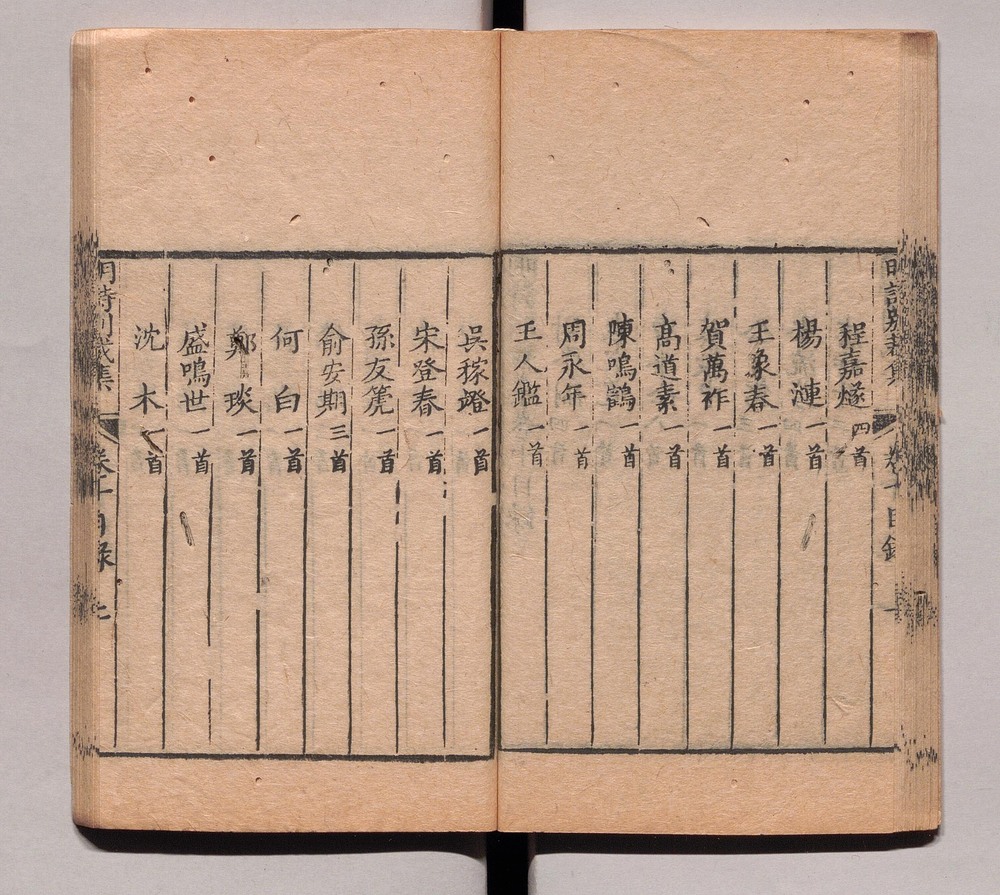 明詩別裁集
卷十目錄
程嘉燧 四首
楊漣 一首
王象春 一首
賀萬祚 一首
高道素 一首
陳鳴鶴 一首
周永年 一首
王人鑑 一首
吳稼竳 一首
宋登春 一首
孫友篪 一首
俞安期 三首
何白 一首
鄭琰 一首
盛鳴世 一首
沈木 一首
明詩別裁集
卷十目錄